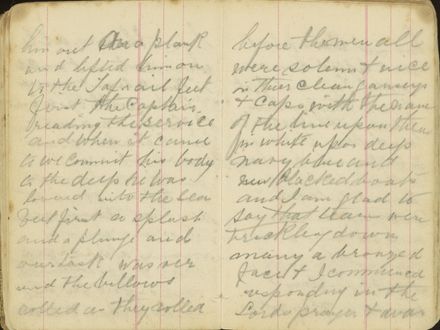 him out on a plank
and lifted him on
to the Tafrail feet
first the Captain
reading the service
and when it came
to we commit his body
to the deep he was
lowered into the sea
feet first a splash
and a plunge and
our task was over
and the billows
rolled as they rolled
before the men all
were solemn & nice
in their clean
& caps with the name
of the line upon them
in white upon deep
navy blue and
new blacked boots
and I am glad to
say that tears were
trickling down
many a bronzed
face & I commenced
responding in the
Lords prayer &